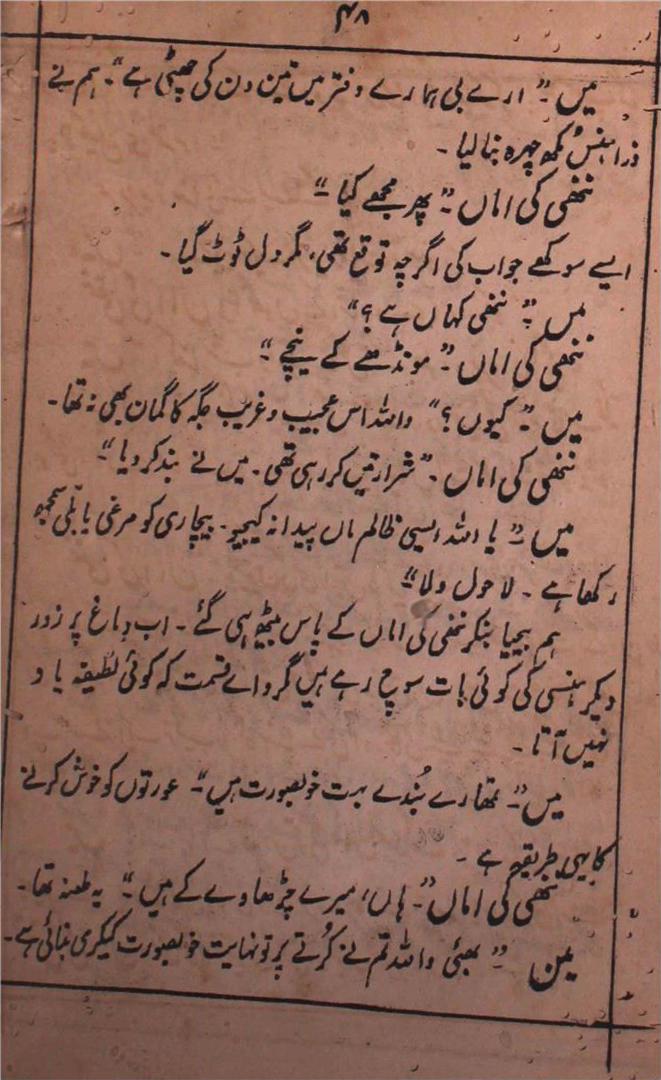 ۴۸
میں۔" ارے بی ہمارے دفتر میں تین دن کی چھٹی ہے"۔ ہم نے
ذرا ہنس مکھ چہرہ بنا لیا۔
ننھی کی اماں۔" پھر مجھے کیا"
ایسے سوکھے جواب کی اگرچہ توقع تھی، مگر دل ٹوٹ گیا۔
میں۔" ننھی کہاں ہے؟"
ننھی کی اماں۔" مونڈھے کے نیچے"
میں۔" کیوں؟" واللہ اس عجیب و غریب جگہ کا گمان بھی نہ تھا۔
ننھی کی اماں۔" شرارتیں کر رہی تھی۔ میں نے بند کر دیا"
میں۔" یا اللہ ایسی ظالم ماں پیدا نہ کیجیو۔ بیچاری کو مرغی یا بلّی سمجھ
رکھا ہے۔ لاحول ولا"
ہم بیحیا بنکر ننھی کی اماں کے پاس بیٹھ ہی گئے۔ اب دماغ پر زور
دیکر ہنسی کی کوئی بات سوچ رہے ہیں مگر واے قسمت کہ کوئی لطیفہ یاد
نہیں آتا۔
میں۔" تمھارے بُندے بہت خوبصورت ہیں"۔ عورتوں کو خوش کرنے
کا یہی طریقہ ہے۔
ننھی کی اماں۔" ہاں، میرے چڑھاوے کے ہیں"۔ یہ طعنہ تھا۔
میں " بھئی واللہ تم نے کُرتے پر تو نہایت خوبصورت کیکری بنائی ہے۔